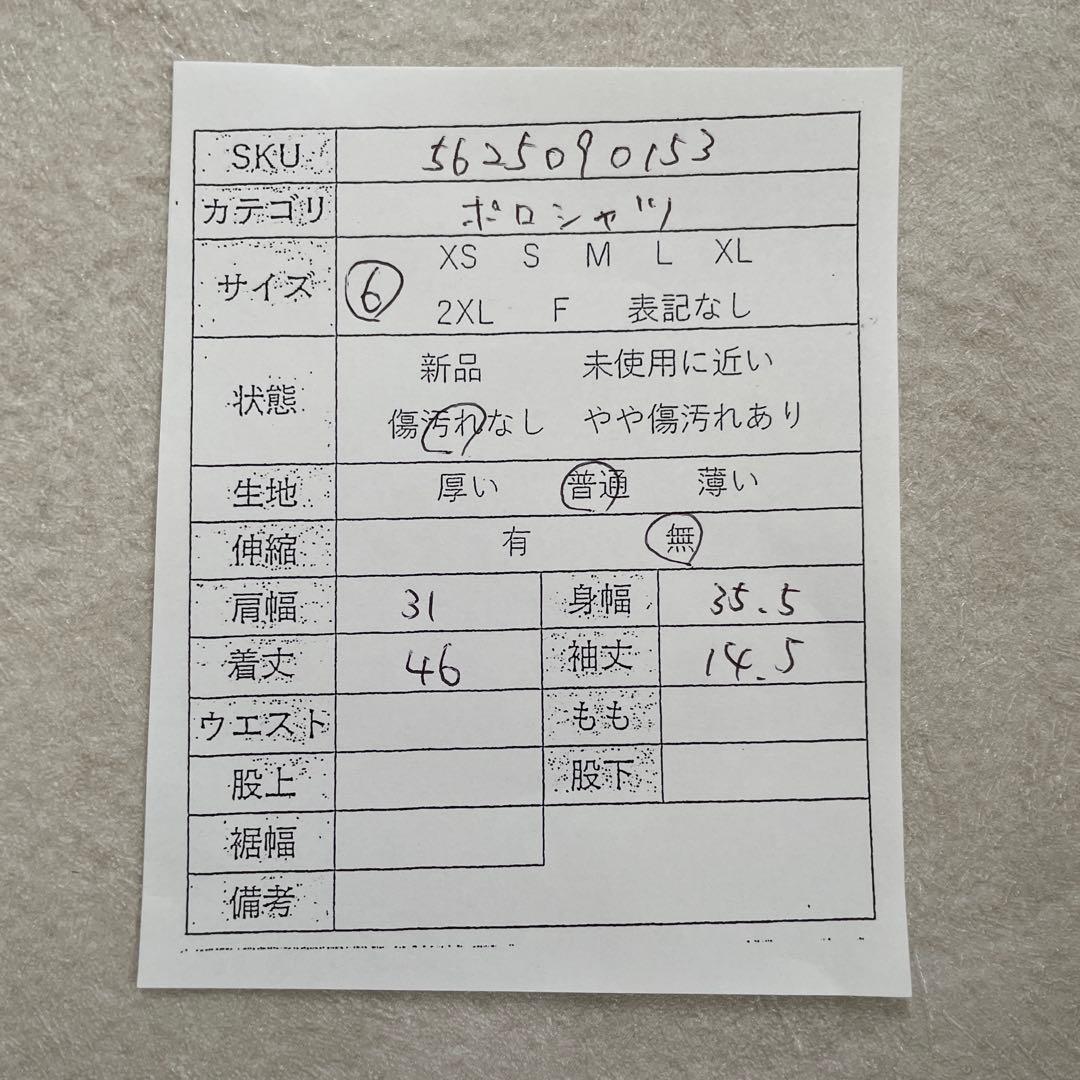 SKU 5625090153
カテゴリ ポロシャツ
XS S M L XL
サイズ 6
2XL F 表記なし
新品 未使用に近い
状態
傷汚れなし やや傷汚れあり
生地 厚い 普通 薄い
伸縮 有 無
肩幅 31 身幅 35.5
着丈 46 袖丈 14.5
ウエスト もも
股上 股下
裾幅
備考